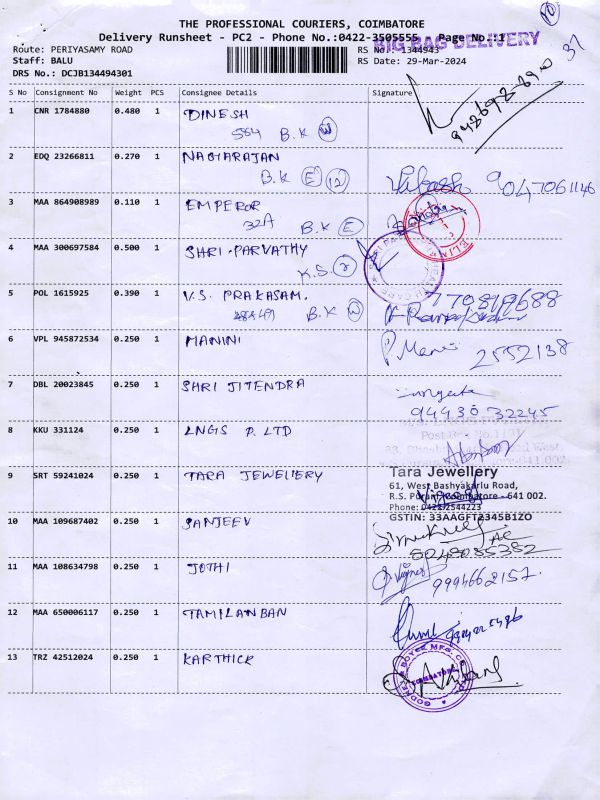 THE PROFESSIONAL COURIERS, COIMBATORE
Delivery Runsheet - PC2 - Phone No.:0422-3505555 Page No.:1
BIG BAG DELIVERY
37
Route: PERIYASAMY ROAD RS No.: 1344943
Staff: BALU RS Date: 29-Mar-2024
DRS No.: DCJB134494301
S No Consignment No Weight PCS Consignee Details Signature
1 CNR 1784880 0.480 1 DINESH
564 B.K W
2 EDQ 23266811 0.270 1 NAGARAJAN
B.K E 12
9047061146
3 MAA 864908989 0.110 1 EMPEROR
32A B.K E
4 MAA 300697584 0.500 1 SHRI.PARVATHY
K.S. 2
5 POL 1615925 0.390 1 V.S. PRAKASAM.
B.K W
6 VPL 945872534 0.250 1 MANINI P. Mani 2552138
7 DBL 20023845 0.250 1 SHRI JITENDRA
94430 32245
8 KKU 331124 0.250 1 LNGS P. LTD
9 SRT 59241024 0.250 1 TARA JEWELLERY
Tara Jewellery
61, West Bashyakarlu Road,
R.S. Puram, Coimbatore - 641 002.
Phone: 0422-2544223
GSTIN: 33AAGFT2345B1ZO
10 MAA 109687402 0.250 1 SANJEEV
11 MAA 108634798 0.250 1 JOTHI
9994662157.
12 MAA 650006117 0.250 1 TAMILANBAN
13 TRZ 42512024 0.250 1 KARTHICK
GODREJ & BOYCE MFG. CO. LTD
COIMBATORE